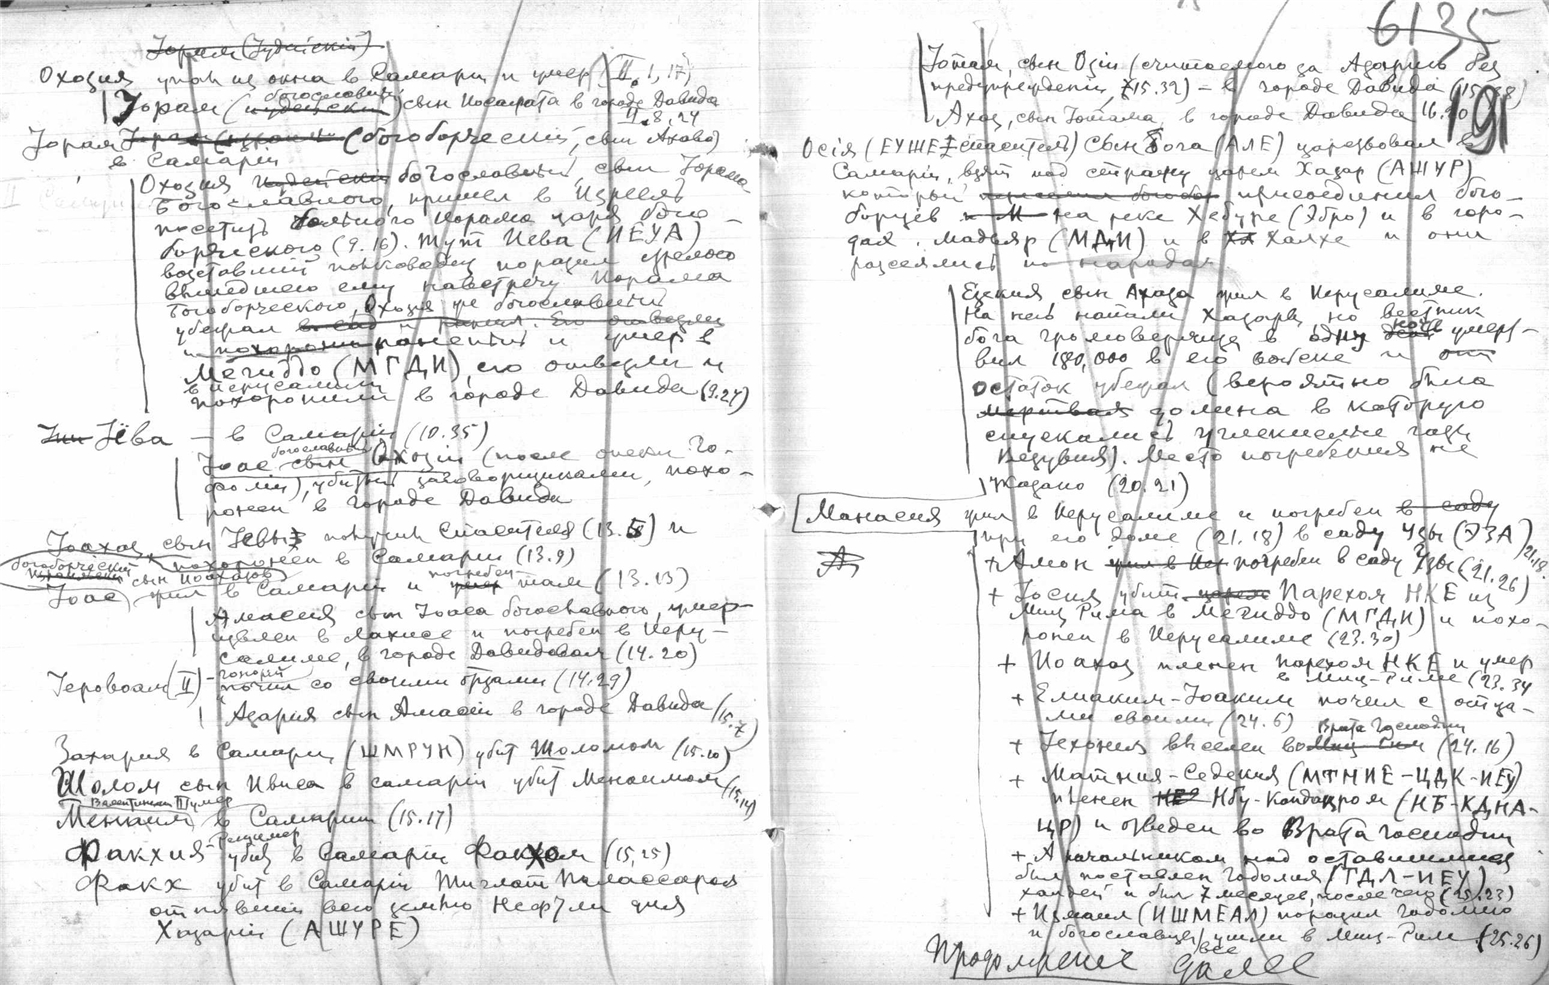 Іорам (Іудейскій).
Охозия упал из окна в Самаріи и умер (II. 1, 17)
богославный
Іорам (иудейский) сын Иосафата в городе Давида
II. 8, 24
Іорам (богоборческий, сын Ахаво)
в Самаріи
Охозия иудейский богославный, сын Іорама
богославного, пришел в Изреель
посетить больного Иорама царя бого-
борческого (9.16). Тут Иева (ИЕУА)
возставший полководец поразил
вышедшего ему навстречу Иорама
богоборческого, Охозия же богославный
убежал и
и похорони раненый и умер в
Мегиддо (МГДИ), его отвезли и
в Иерусалим
похоронили в городе Давида (9.27)
Іёва — в Самаріи (10.35)
богославный
Іоас сын Охозіи (после опеки Го-
фоліи), убитый заговорщиками, похо-
ронен в городе Давида
Іоахаз, сын Іевы получил Спасителя (13.5) и
похоронен в Самаріи (13.9)
богоборческий
сын Иоахазов
Іоас, жил в Самаріи и погребен там (13.13)
Амасия сын Іоаса богославного, умер-
щвлен в Лахисе и погребен в Иеру-
салиме, в городе Давидовом (14.20)
Іеровоам (II) -
почил со своими отцами (14.29)
Азария сын Амасіи в городе Давида (15.7)
Захария в Самаріи (ШМРУН) убит Шоломом (15.10)
Шолом сын Ивиса в Самаріи убит Менаимом (15.14)
Валентиниан III умер
Менаим в Самаріи (15.17)
Рецимер
Факхия убит в Самаріи Факхом (15,25)
Факх убит в Самаріи Тиглат Палассаром
отнявший всю землю Нефѳали для
Хазаріи (АШУРЕ)
6135
191
Іотам, сын Озіи (считаемого за Азарию без
предупреждений, 15.32) – в городе Давида (15.38)
Ахаз, сын Іотама, в городе Давида 16.20
Осія (ЕУШЕ спаситель) сын бога (АЛЕ) царствовал в
Самаріи, взят под стражу царем Хазар (АШУР)
который присоединил бого-
борцев на реке Хебуре (Эбро) и в горо-
дах Мадьяр (МДИ) и в Халхе и они
разсеялись по народам
Езекия, сын Ахаза жил в Иерусалиме.
На него напали Хазары, но вестник
бога громовержца в одну ночь умерт-
вил 180,000 в его войске и
остаток убежал (вероятно была
мертвая долина в которую
спускались углекислые газы
Везувия). Место погребения не
указано (20.21)
Манасия жил в Иерусалиме и погребен в саду
при его доме (21.18) в саду Узы (ЭЗА) 21.18.
+ Амон жил в Иер погребен в саду Узы (21.26)
+ Іосия убит Парехом НКЕ из
Миц Рима в Мегиддо (МГДИ) и похо-
ронен в Иерусалиме (23.30)
+ Иоахаз пленен Парехом НКЕ и умер
в Миц-Риме (23.34
+ Елиаким-Іоаким почил с отца-
ми своими (24.6)
Врата Господни
+ Іехония выселен во (24.16)
+ Матния-Седекия (МТНИЕ-ЦДК-ИЕУ)
пленен Нбу-Кандацром (НБ-КДНА-
ЦР) и отведен во Врата Господни
+ А начальником над оставшимися
был поставлен Годолия (ГДЛ-ИЕУ)
халдей и был 7 месяцев, после чего (25.23)
+ Измаил (ИШМЕАЛ) поразил Годолию
и богославцы все ушли в Миц-Рим (25.26)
Продолжение далее